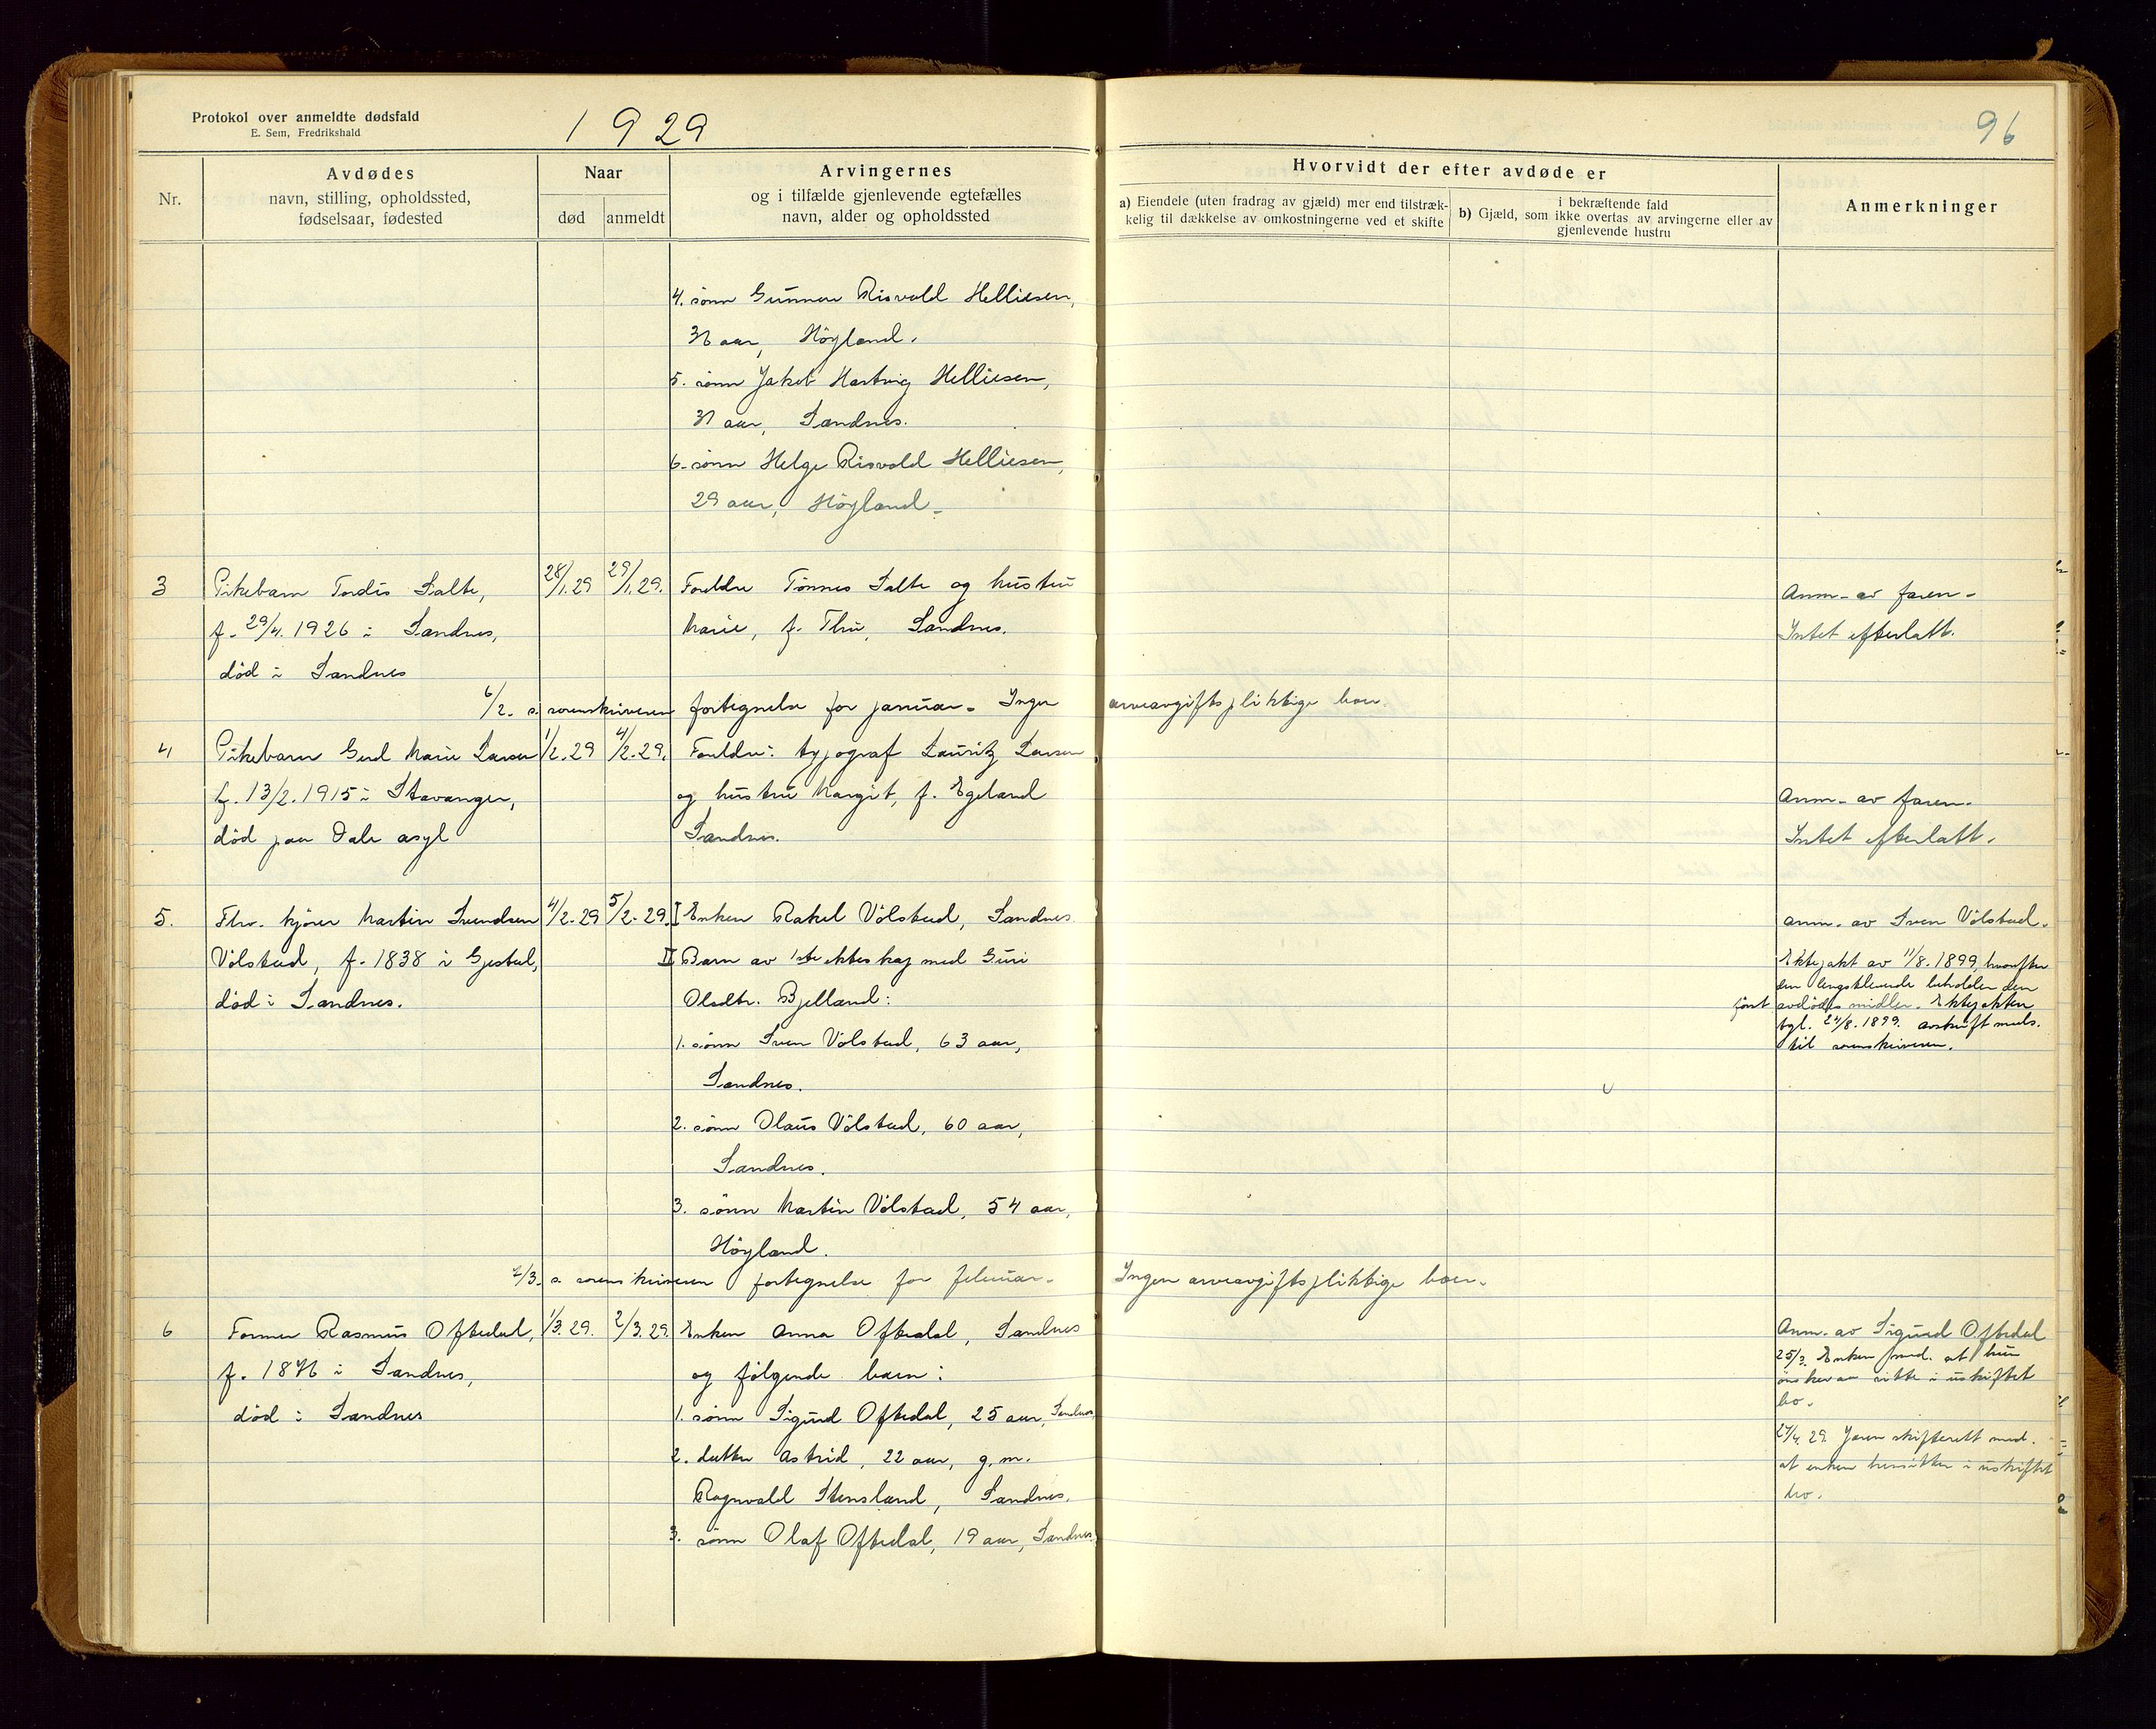 Protokol over anmeldte dødsfald
E. Sem, Fredrikshald
1929
96
Nr.
Avdødes
navn, stilling, opholdssted,
fødselsaar, fødested
Naar
død
anmeldt
Arvingernes
og i tilfælde gjenlevende egtefælles
navn, alder og opholdssted
Hvorvidt der efter avdøde er
a) Eiendele (uten fradrag av gjæld) mer end tilstræk-
kelig til dækkelse av omkostningerne ved et skifte
i bekræftende fald
b) Gjæld, som ikke overtas av arvingerne eller av
gjenlevende hustru
Anmerkninger
4. sönn Gunnar Risvold Helliesen,
aar, Höyland.
5. sönn Jakob Hartvig Helliesen,
aar, Sandnes.
6. sönn Helge Risvold Helliesen,
29 aar, Höyland.
3
Pikebarn Tordis Salte,
f. 29/4. 1926 i Sandnes,
död i Sandnes
28/1.29
29/1.29.
Foreldre Tönnes Salte og hustru
Marie, f. Thu, Sandnes.
Anm. av faren.
Intet efterlatt.
6/2. s. sorenskriveren fortegnelse for januar. Ingen arveavgiftspliktige boer.
4
Pikebarn Gerd Marie Larsen
f. 13/2. 1915 i Stavanger,
död paa Dale asyl
1/2.29
4/2.29.
Foreldre: typograf Lauritz Larsen
og hustru Margit, f. Egeland
Sandnes.
Anm. av faren.
Intet efterlatt.
5.
Fhv. kjörer Martin Svendsen
Völstad, f. 1838 i Gjestal,
död i Sandnes.
4/2.29
5/2.29.
I Enken Rakel Völstad, Sandnes
II Barn av 1ste ekteskap med Guri
Olsdtr. Bjelland:
1. sönn Sven Völstad, 63 aar,
Sandnes.
2. sönn Olaus Völstad, 60 aar,
Sandnes.
3. sönn Martin Völstad, 54 aar,
Höyland.
Anm. av Sven Völstad.
Ektepakt av 11/8. 1899, hvorefter
den lengstlevende beholder den
först avdödes midler. Ektepakten
tgl. 24/8. 1899. avskrift meds.
til sorenskriveren.
2/3. s. sorenskriveren fortegnelse for februar. Ingen arveavgiftspliktige boer.
6
Former Rasmus Oftedal,
f. 1876 i Sandnes,
död i Sandnes
1/3.29.
2/3.29.
Enken Anna Oftedal, Sandnes
og fölgende barn:
1. sönn Sigurd Oftedal, 25 aar, Sandnes
2. datter Astrid, 22 aar, g.m.
Ragnvald Stensland, Sandnes.
3. sönn Olaf Oftedal, 19 aar, Sandnes.
Anm. av Sigurd Oftedal
25/3. Enken med. at hun
önsker aa sitte i uskiftet
bo.
27/4. 29. Jæren skifterett med.
at enken hensitter i uskiftet
bo.